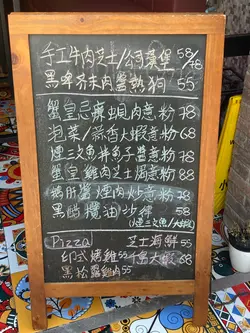 手工牛肉芝士/公司漢堡 58/48
黑啤芥末肉醬熱狗 55
蟹皇忌廉蝦肉意粉 78
泡菜/蒜香大蝦意粉 68
煙三文魚 魚子醬意粉 78
蟹皇 雞肉芝士焗意粉 68
鵝肝醬煙肉炒意粉 78
黑醋欖油沙律 58
(煙三文魚/大蝦)
Pizza 芝士海鮮 55
印式烤雞 55 千島大蝦 68
黑松露雞肉 55